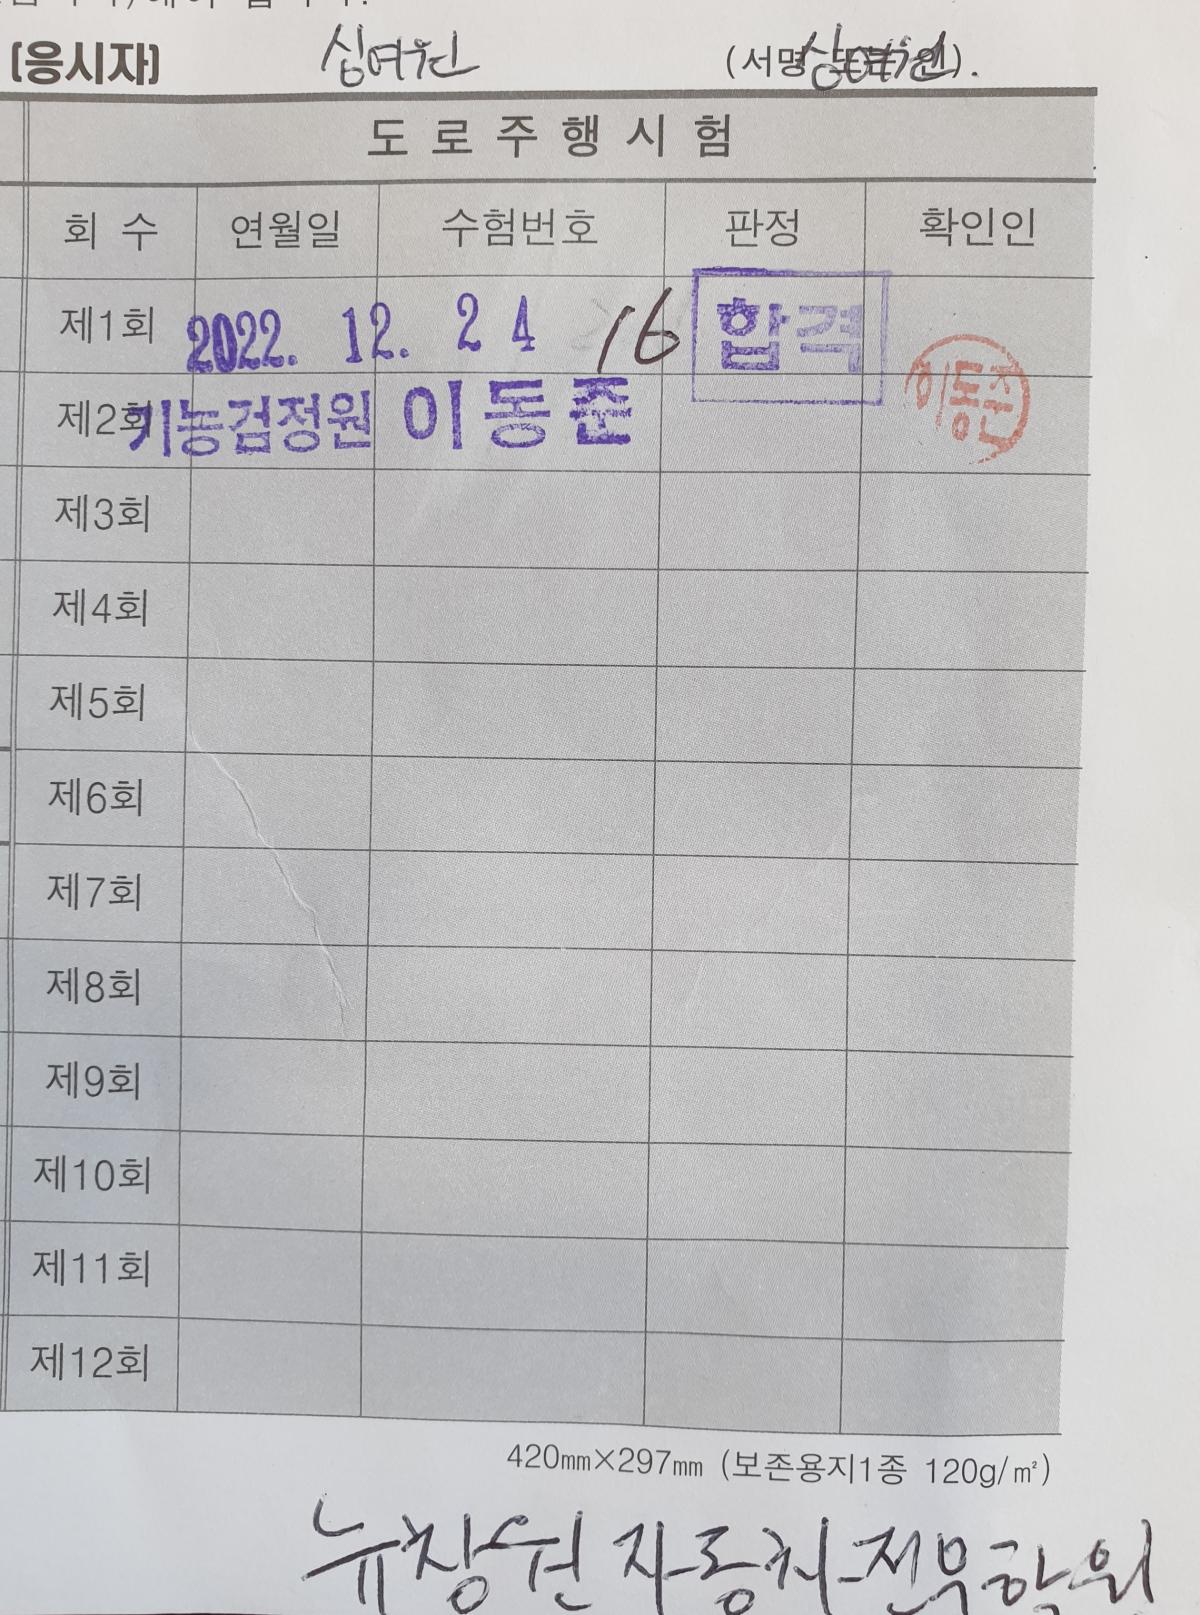 [응시자] 심여원 (서명 또는 인).
심여원
도로주행시험
회 수 연월일 수험번호 판정 확인인
제1회 2022. 12. 24 16 합격
이동준
제2회 기능검정원 이동준
제3회
제4회
제5회
제6회
제7회
제8회
제9회
제10회
제11회
제12회
420㎜×297㎜ (보존용지1종 120g/㎡)
뉴창원자동차전문학원